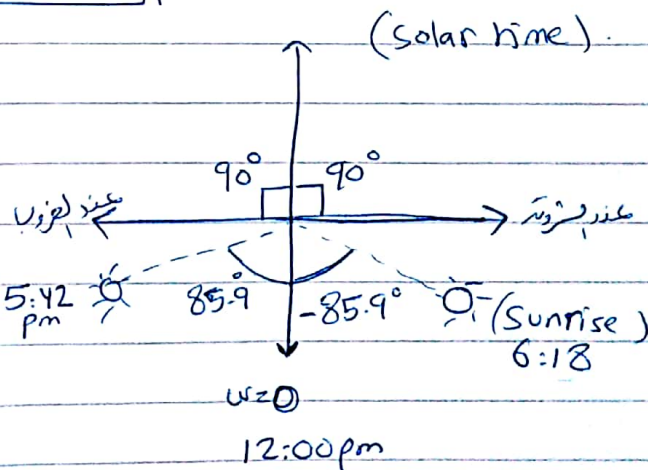 (solar time).
90° 90°
عند الغروب
عند الشروق
5:42 pm
85.9°
-85.9°
(Sunrise)
6:18
w=0
12:00pm